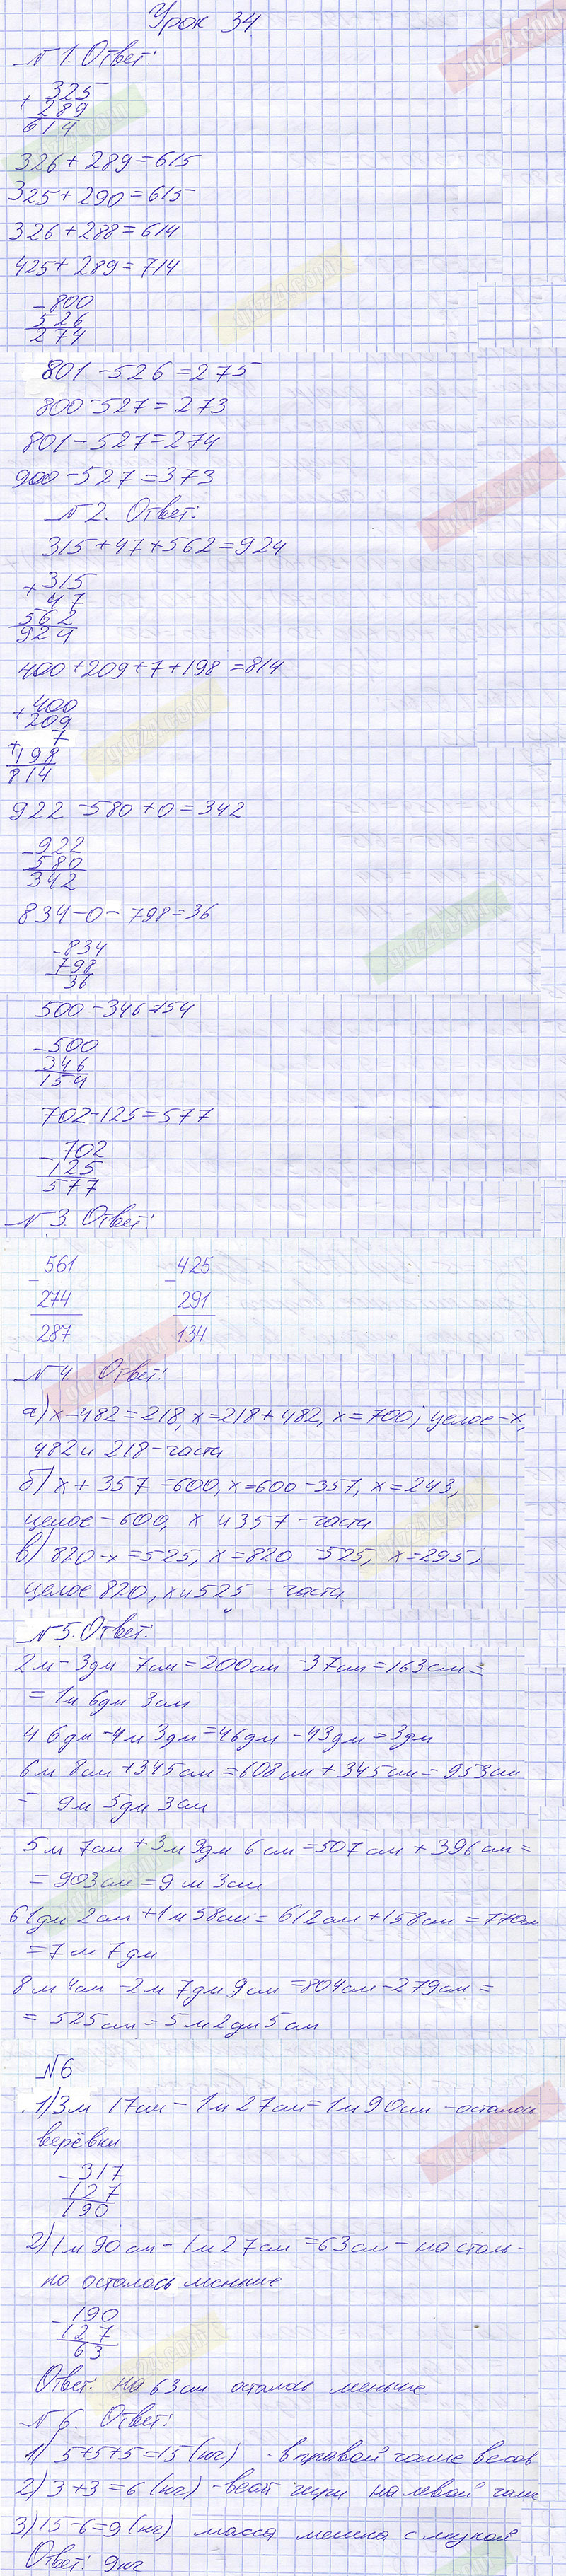 Урок 34
№1. Ответ:
+ 325
289
614
326 + 289 = 615
325 + 290 = 615
326 + 288 = 614
425 + 289 = 714
- 800
526
274
801 - 526 = 275
800 - 527 = 273
801 - 527 = 274
900 - 527 = 373
№2. Ответ:
315 + 47 + 562 = 924
+ 315
47
562
924
400 + 209 + 7 + 198 = 814
+ 400
209
+ 7
198
814
922 - 580 + 0 = 342
- 922
580
342
834 - 0 - 798 = 36
- 834
798
36
500 - 346 = 154
- 500
346
154
702 - 125 = 577
- 702
125
577
№3. Ответ:
- 561 - 425
274 291
287 134
№4. Ответ:
а) х - 482 = 218, х = 218 + 482, х = 700; целое - х,
482 и 218 - части
б) х + 357 = 600, х = 600 - 357, х = 243,
целое - 600, х и 357 - части
в) 820 - х = 525, х = 820 - 525, х = 295;
целое 820, х и 525 - части
№5. Ответ:
2м - 3дм 7см = 200см - 37см = 163см =
= 1м 6дм 3см
46дм - 4м 3дм = 46дм - 43дм = 3дм
6м 8см + 345см = 608см + 345см = 953см
= 9м 5дм 3см
5м 7см + 3м 9дм 6см = 507см + 396см =
= 903см = 9м 3см
61дм 2см + 1м 58см = 612см + 158см = 770см
= 7м 7дм
8м 4см - 2м 7дм 9см = 804см - 279см =
= 525см = 5м 2дм 5см
№6
1) 3м 17см - 1м 27см = 1м 90см - осталось
верёвки
- 317
127
190
2) 1м 90см - 1м 27см = 63см - на столь-
ко осталось меньше
- 190
127
63
Ответ: на 63см осталось меньше.
№6. Ответ:
1) 5 + 5 + 5 = 15 (кг) - в правой чаше весов
2) 3 + 3 = 6 (кг) - весят гири на левой чаше
3) 15 - 6 = 9 (кг) масса мешка с мукой
Ответ: 9кг